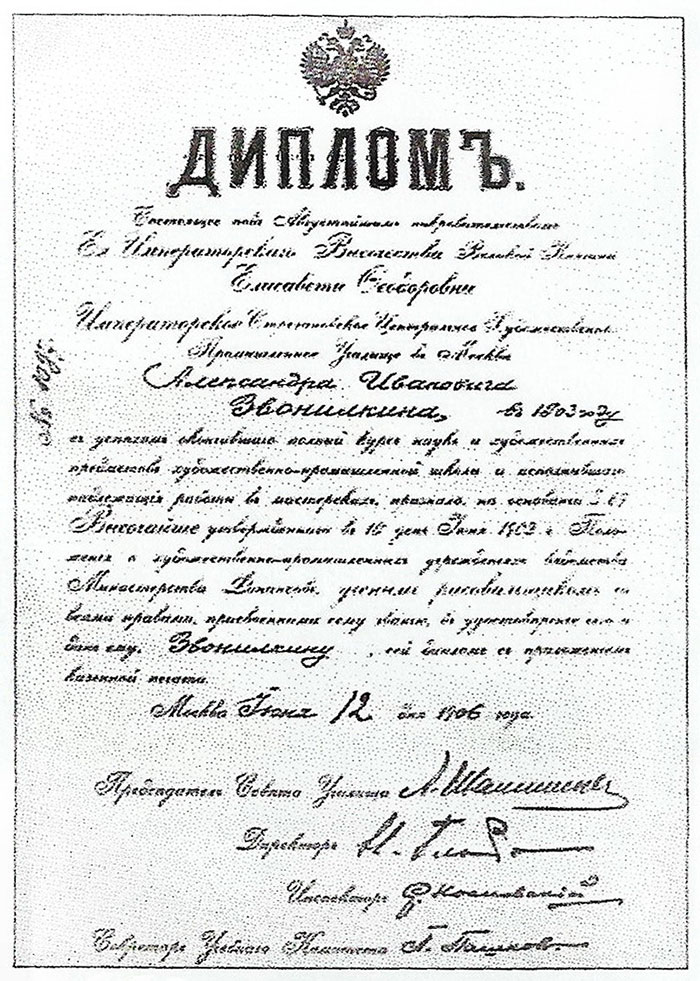 ДИПЛОМЪ.
Состоящее подъ Августѣйшимъ покровительствомъ
Ея Императорскаго Высочества Великой Княгини
Елисаветы Ѳеодоровны
Императорское Строгановское Центральное Художественно-
Промышленное Училище въ Москвѣ
Александра Ивановича
Звонилкина, въ 1903 году
съ успѣхомъ окончившаго полный курсъ наукъ и художественныхъ
предметовъ художественно-промышленной школы и исполнившаго
надлежащія работы въ мастерскихъ, признало, на основаніи §
Высочайше утвержденнаго въ день Іюня 1902 г. Поло-
женія о художественно-промышленныхъ учрежденіяхъ вѣдомства
Министерства Финансовъ, ученымъ рисовальщикомъ со
всѣми правами, присвоенными сему званію, въ удостовѣреніе чего и
данъ ему, Звонилкину, сей дипломъ съ приложеніемъ
казенной печати.
Москва Іюня 12 дня 1906 года.
Предсѣдатель Совѣта Училища
Директоръ
Инспекторъ
Секретарь Учебнаго Комитета П. Пашковъ